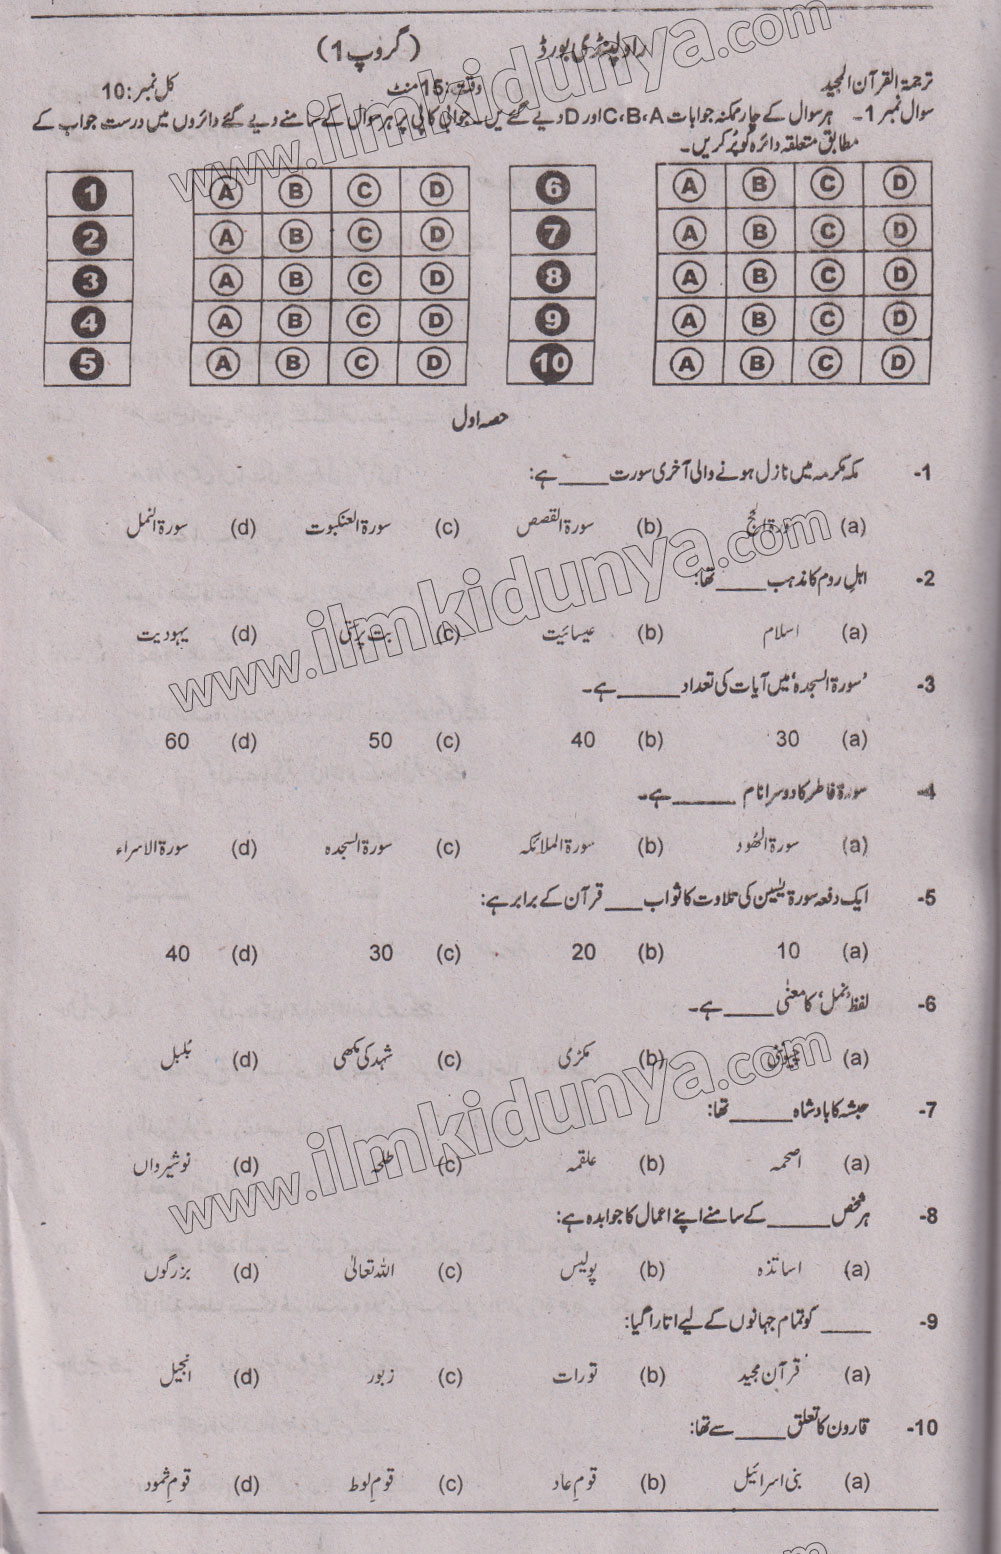 راولپنڈی بورڈ (گروپ 1)
ترجمۃ القرآن المجید وقت: 15 منٹ کل نمبر: 10
سوال نمبر 1- ہر سوال کے چار ممکنہ جوابات A، B، C اور D دیے گئے ہیں۔ جوابی کاپی پر ہر سوال کے سامنے دیے گئے دائروں میں درست جواب کے
مطابق متعلقہ دائرہ کو پُر کریں۔
1 A B C D 6 A B C D
2 A B C D 7 A B C D
3 A B C D 8 A B C D
4 A B C D 9 A B C D
5 A B C D 10 A B C D
حصہ اول
1- مکہ مکرمہ میں نازل ہونے والی آخری سورت ____ ہے:
(a) سورۃ الحج (b) سورۃ القصص (c) سورۃ العنکبوت (d) سورۃ النمل
2- اہلِ روم کا مذہب ____ تھا:
(a) اسلام (b) عیسائیت (c) بت پرستی (d) یہودیت
3- ’سورۃ السجدہ‘ میں آیات کی تعداد ____ ہے۔
(a) 30 (b) 40 (c) 50 (d) 60
4- سورۃ فاطر کا دوسرا نام ____ ہے۔
(a) سورۃ الھُود (b) سورۃ الملائکہ (c) سورۃ السجدہ (d) سورۃ الاسراء
5- ایک دفعہ سورۃ یٰسین کی تلاوت کا ثواب ____ قرآن کے برابر ہے:
(a) 10 (b) 20 (c) 30 (d) 40
6- لفظ ’نمل‘ کا معنٰی ____ ہے۔
(a) چیونٹی (b) مکڑی (c) شہد کی مکھی (d) بُلبل
7- حبشہ کا بادشاہ ____ تھا:
(a) اصحمہ (b) علقمہ (c) طلحہ (d) نوشیرواں
8- ہر شخص ____ کے سامنے اپنے اعمال کا جوابدہ ہے:
(a) اساتذہ (b) پولیس (c) اللہ تعالیٰ (d) بزرگوں
9- ____ کو تمام جہانوں کے لیے اتارا گیا:
(a) قرآن مجید (b) تورات (c) زبور (d) انجیل
10- قارون کا تعلق ____ سے تھا:
(a) بنی اسرائیل (b) قومِ عاد (c) قومِ لوط (d) قومِ ثمود
www.ilmkidunya.com
www.ilmkidunya.com
www.ilmkidunya.com